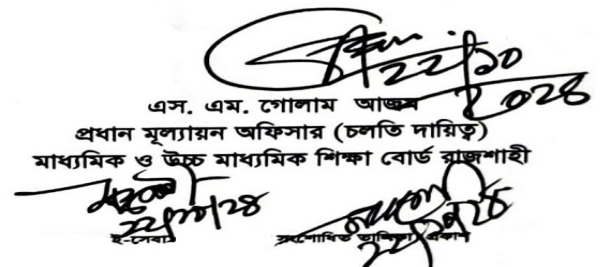 ২২/১০
২০২৪
এস. এম. গোলাম আজম
প্রধান মূল্যায়ন অফিসার (চলতি দায়িত্ব)
মাধ্যমিক ও উচ্চ মাধ্যমিক শিক্ষা বোর্ড রাজশাহী
ই-সেবা
সংশোধিত তালিকা প্রকাশ